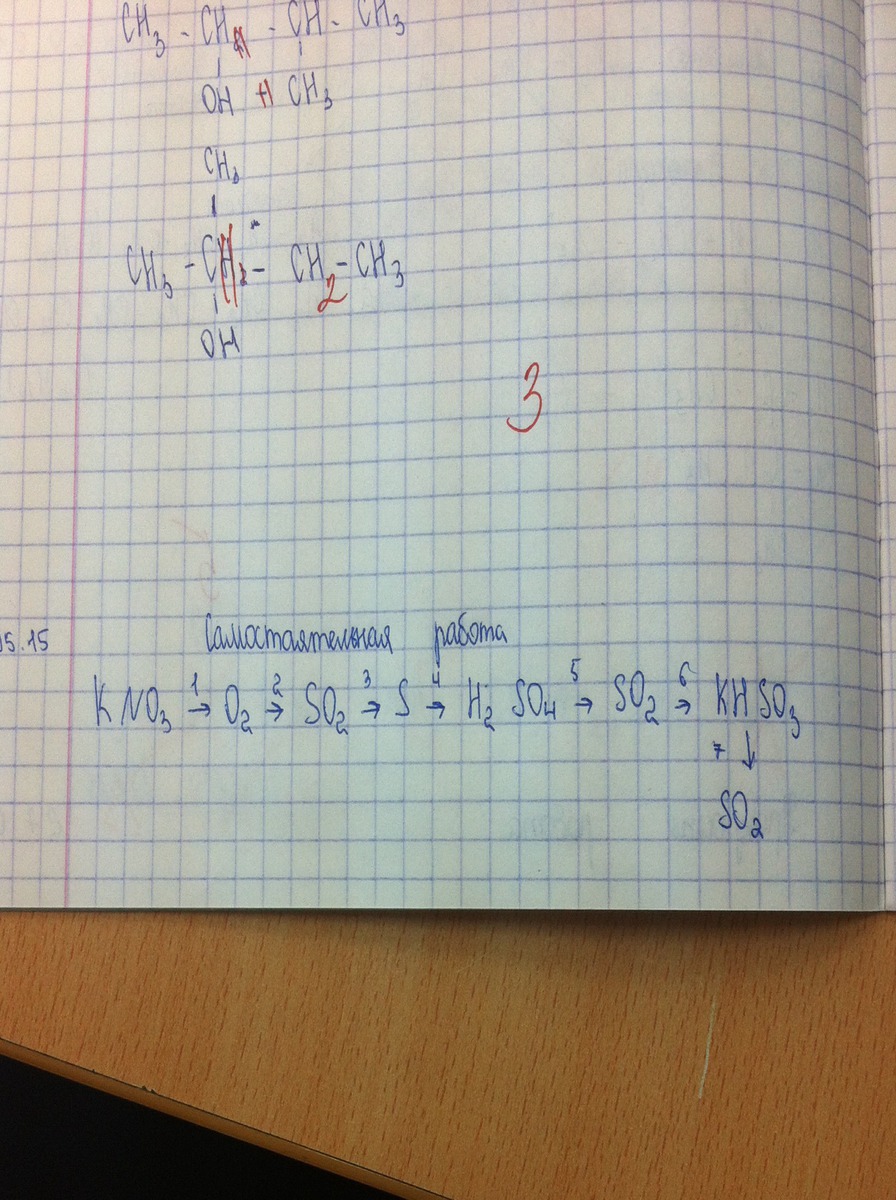 CH₃ - CH - CH - CH₃
OH H CH₃
CH₃
CH₃ - CH₂ - CH₂ - CH₃
OH
3
05.15 Самостоятельная работа
KNO₃ 1→ O₂ 2→ SO₂ 3→ S 4→ H₂SO₄ 5→ SO₂ 6→ KHSO₃
7 ↓
SO₂